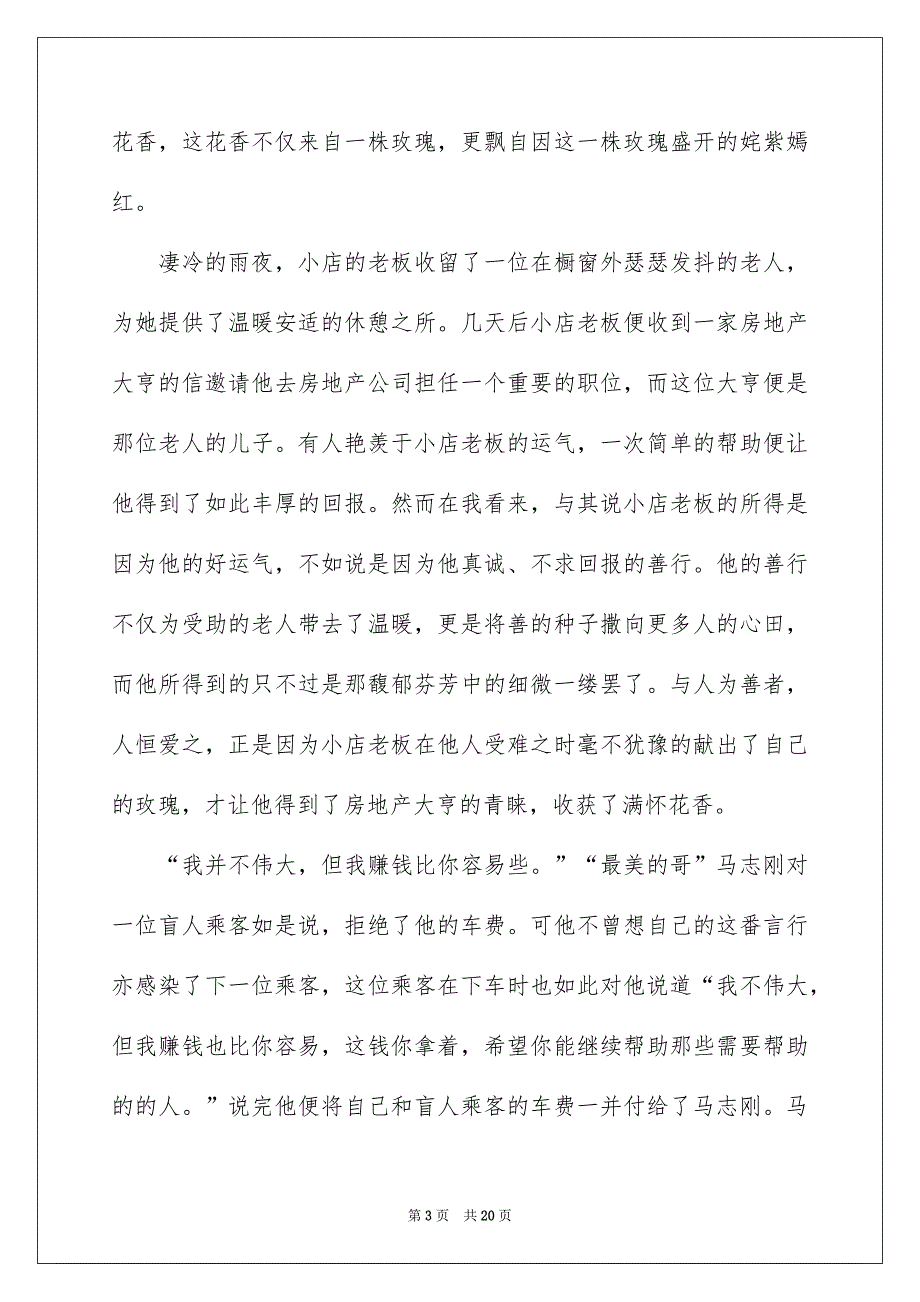 花香，这花香不仅来自一株玫瑰，更飘自因这一株玫瑰盛开的姹紫嫣
红。
凄冷的雨夜，小店的老板收留了一位在橱窗外瑟瑟发抖的老人，
为她提供了温暖安适的休憩之所。几天后小店老板便收到一家房地产
大亨的信邀请他去房地产公司担任一个重要的职位，而这位大亨便是
那位老人的儿子。有人艳羡于小店老板的运气，一次简单的帮助便让
他得到了如此丰厚的回报。然而在我看来，与其说小店老板的所得是
因为他的好运气，不如说是因为他真诚、不求回报的善行。他的善行
不仅为受助的老人带去了温暖，更是将善的种子撒向更多人的心田，
而他所得到的只不过是那馥郁芬芳中的细微一缕罢了。与人为善者，
人恒爱之，正是因为小店老板在他人受难之时毫不犹豫的献出了自己
的玫瑰，才让他得到了房地产大亨的青睐，收获了满怀花香。
“我并不伟大，但我赚钱比你容易些。”“最美的哥”马志刚对
一位盲人乘客如是说，拒绝了他的车费。可他不曾想自己的这番言行
亦感染了下一位乘客，这位乘客在下车时也如此对他说道“我不伟大，
但我赚钱也比你容易，这钱你拿着，希望你能继续帮助那些需要帮助
的的人。”说完他便将自己和盲人乘客的车费一并付给了马志刚。马
第 3 页 共 20 页